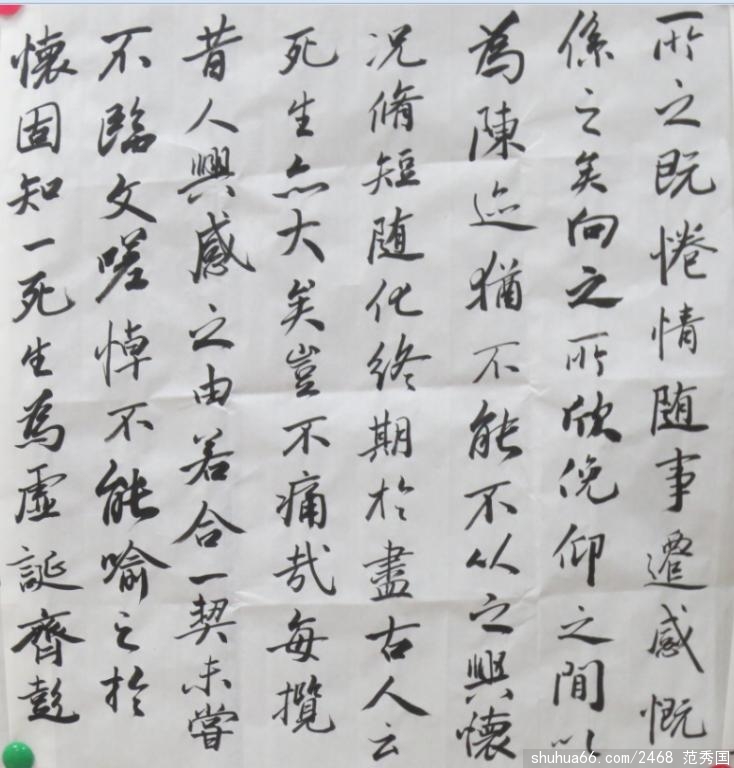 所之既惓情随事遷感慨
係之矣向之所欣俛仰之間以
為陳迹猶不能不以之興懷
况脩短随化終期於盡古人云
死生亦大矣豈不痛哉每攬
昔人興感之由若合一契未嘗
不臨文嗟悼不能喻之於
懷固知一死生為虛誕齊彭
shuhua66.com/2468 范秀国